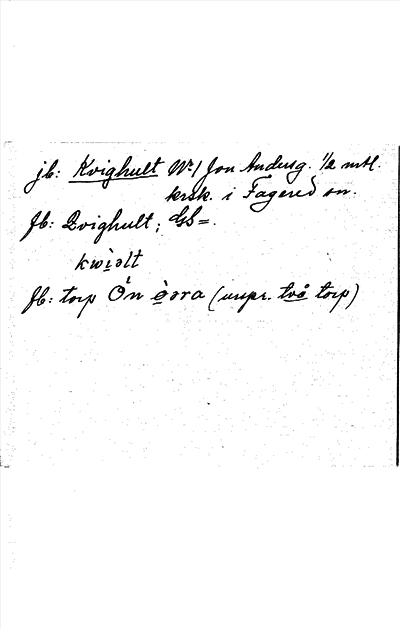 jb: Kvighult Nr 1 Jon Andersg. 1/2 mtl.
krsk. i Fagered sn.
fb: Qvighult; GS=.
kwìəlt
fb: torp Ön öəra (uspr. två torp)